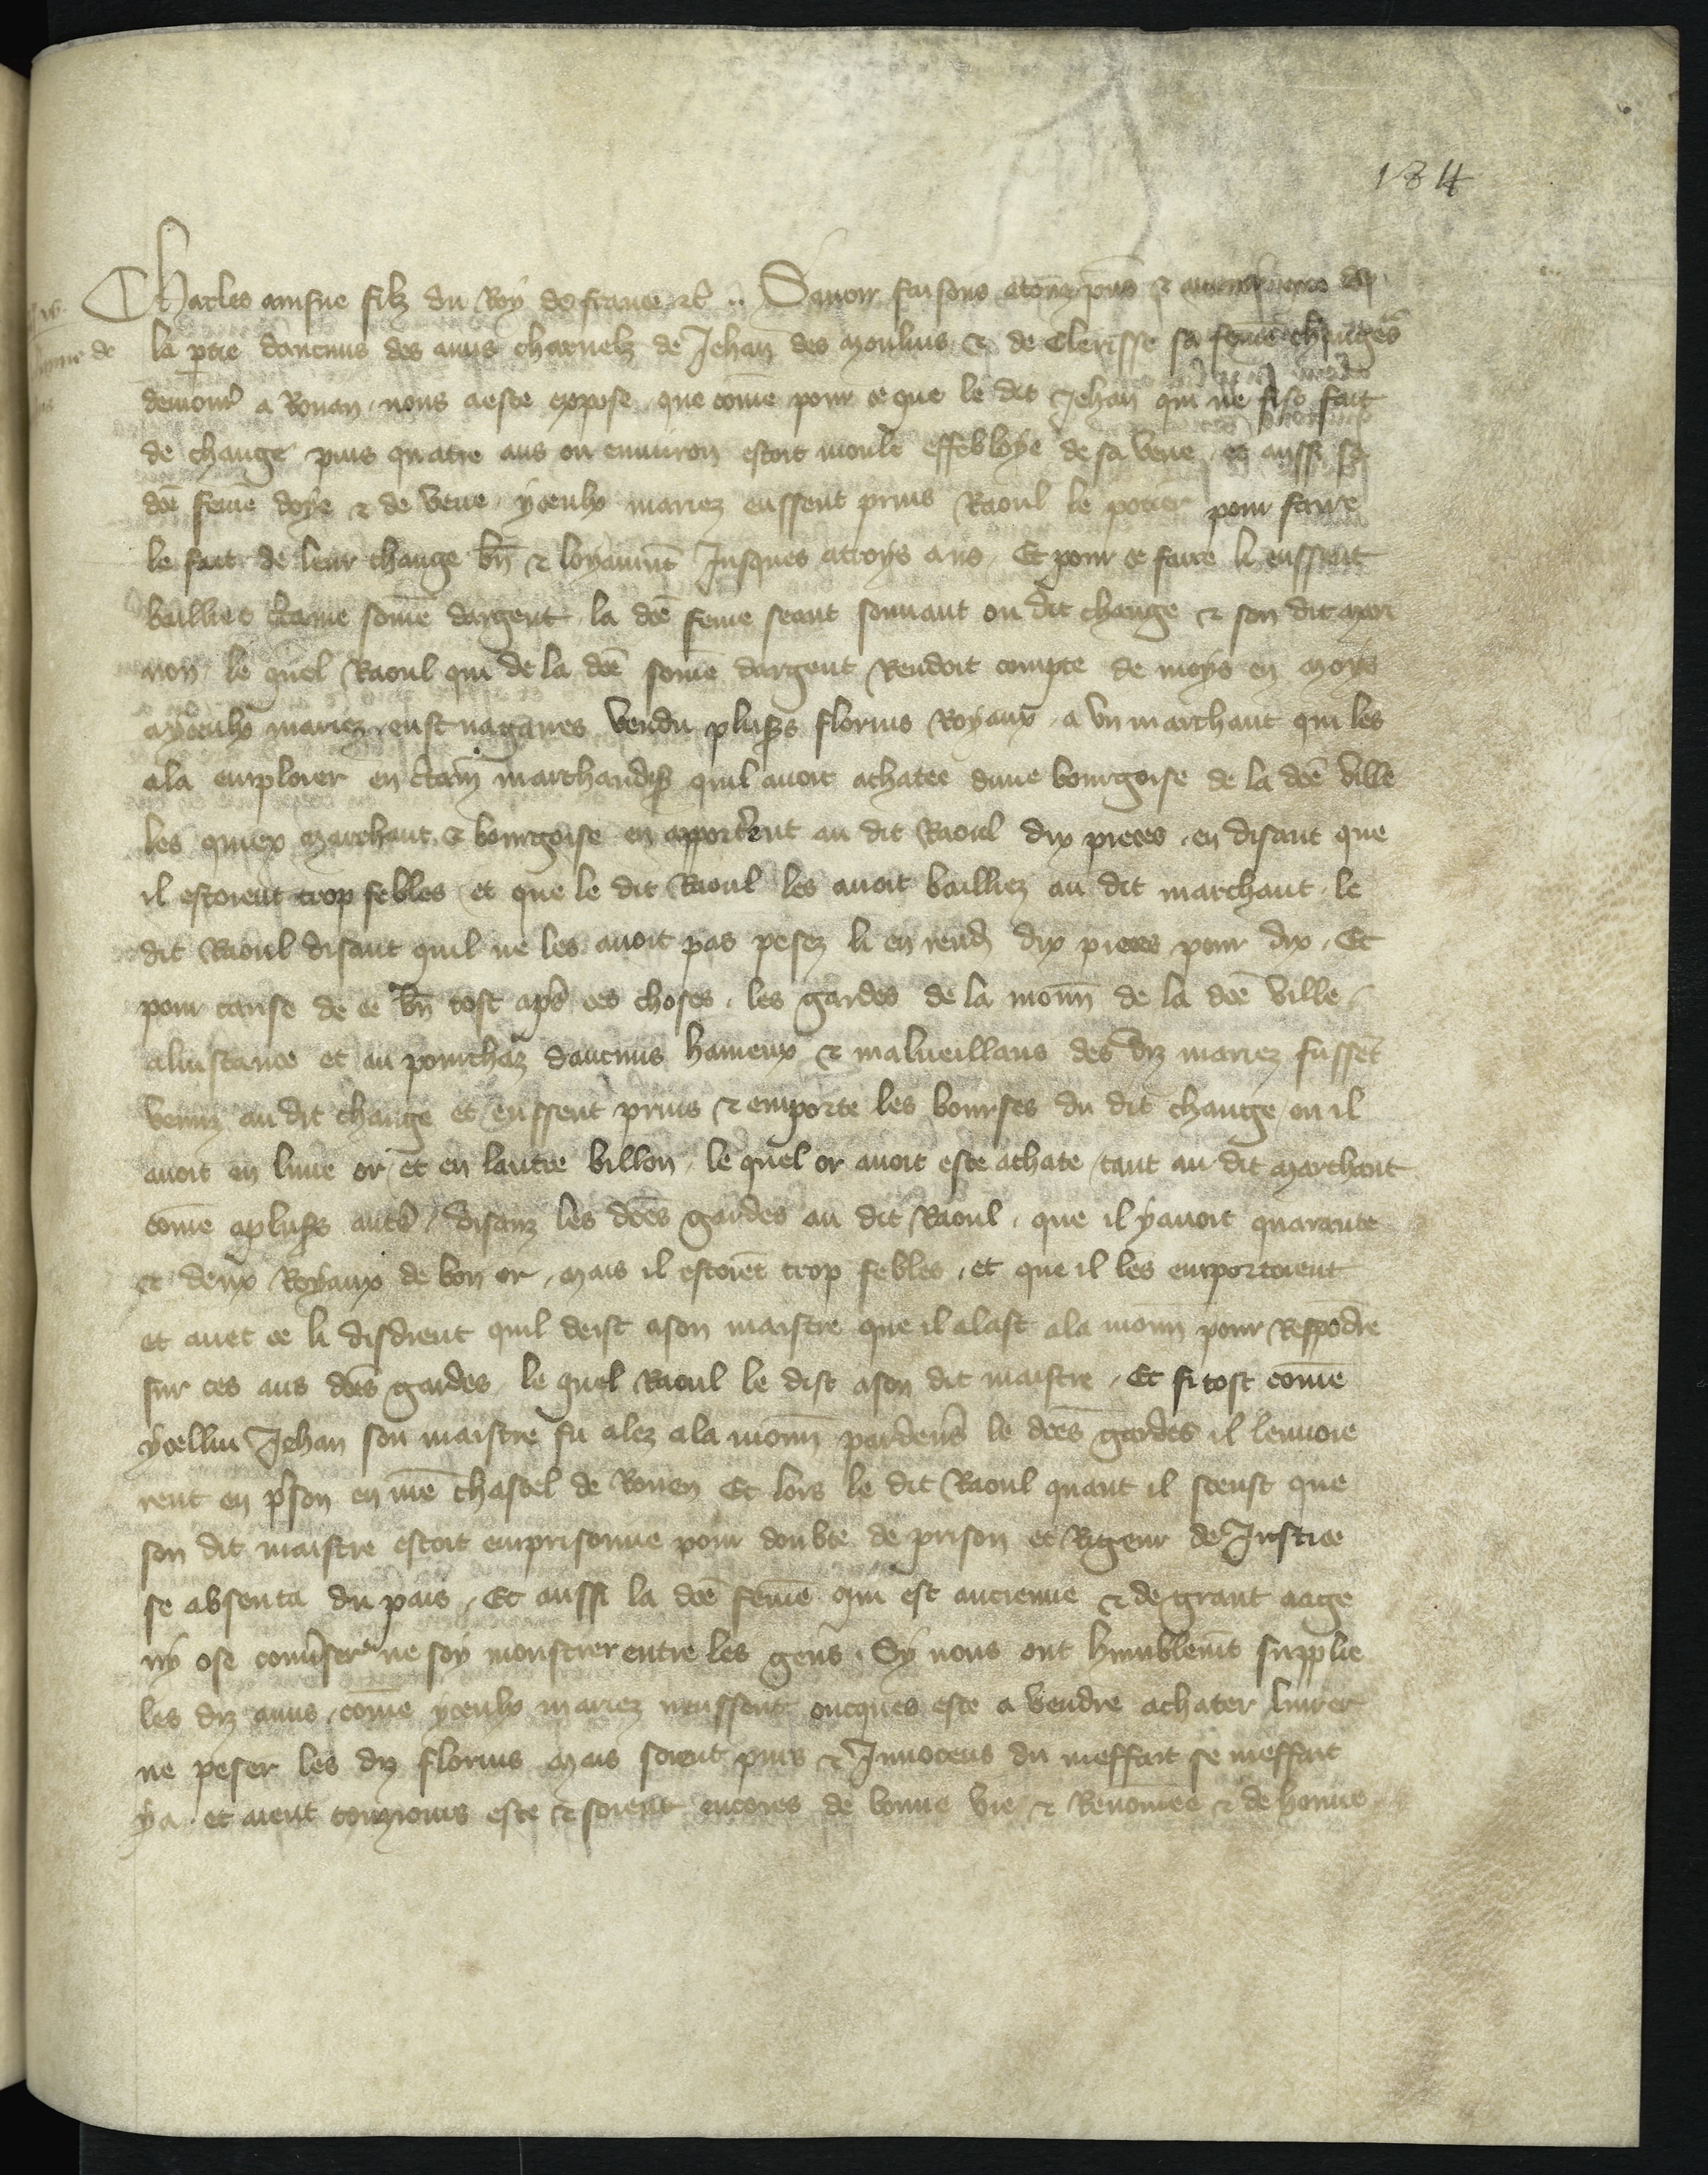 184
Charles ainsne filz du Roy de france etc. Savoir faisons a touz pñs & avenir
la ptie daucuns des amis charnelz de Jehan des Moulins & de Clerisse sa feme chāgeˢ
demourˢ a Rouan nous a este expose que cōme pour ce que le dit Jehan qui ne fist fait
de change puis quatre ans ou environ estoit moult effebloye de sa veue et aussi sa
dcē feme doye & de veue yceulx mariez eussent prins Raoul le potier pour faire
le fait de leur change bñ & loyaumt Jusques a troys ans Et pour ce faire li eussent
baillie ctaine some dargent la dcē feme seant souvant ou dit change & son dit mari
non le quel Raoul qui de la dcē some dargent Rendoit compte de moys en moys
a yceulx mariez eust nagaires vendu plusˢ florins Royaux a un marchant qui les
ala emploier en ctaīn marchandise quil avoit achatee dune bourgoise de la dcē ville
les quiex marchant & bourgoise en apporterent au dit Raoul dix pieces en disant que
il estoient trop febles et que le dit Raoul les avoit bailliez au dit marchant le
dit Raoul disant quil ne les avoit pas pesez li en rendi dix pieces pour dix Et
pour cause de ce bñ tost apˢ ces choses les gardes de la monñ de la dcē ville
a linstance et au pourchaz daucuns haineux & malveillans des diz mariez fussēt
venuz au dit change et eussent prins & emporte les bourses du dit change ou il
avoit en lune or et en lautre billon le quel or avoit este achate tant au dit marchant
cōme a plusˢ autˢ disanz les dcēs gardes au dit Raoul que il y avoit quarante
et deux Royaux de bon or mais il estoiēt trop febles et que il les emportoient
et avec ce li disdrent quil deist a son maistre que il alast a la monñ pour respōdre
sur ces aus dcēs gardes le quel Raoul le dist a son dit maistre Et si tost cōme
ycellui Jehan son maistre fu alez a la monñ par devˢ le dcēs gardes il lenvoie
rent en pson en nrē chastel de Rouen Et lors le dit Raoul quant il sceust que
son dit maistre estoit emprisonne pour doubte de prison et Rigeur de Justice
se absenta du pais Et aussi la dcē feme qui est ancienne & de grant aage
ny ose convserˢ ne soy monstrer entre les gens Sy nous ont humblemt supplie
les diz amis cōme yceulx mariez neussent oncques este a vendre achater livrer
ne peser les diz florins mais soient purs & Innocens du meffait se meffait
y a et aient touzjours este & soient encores de bonne vie & Renomee & de honne